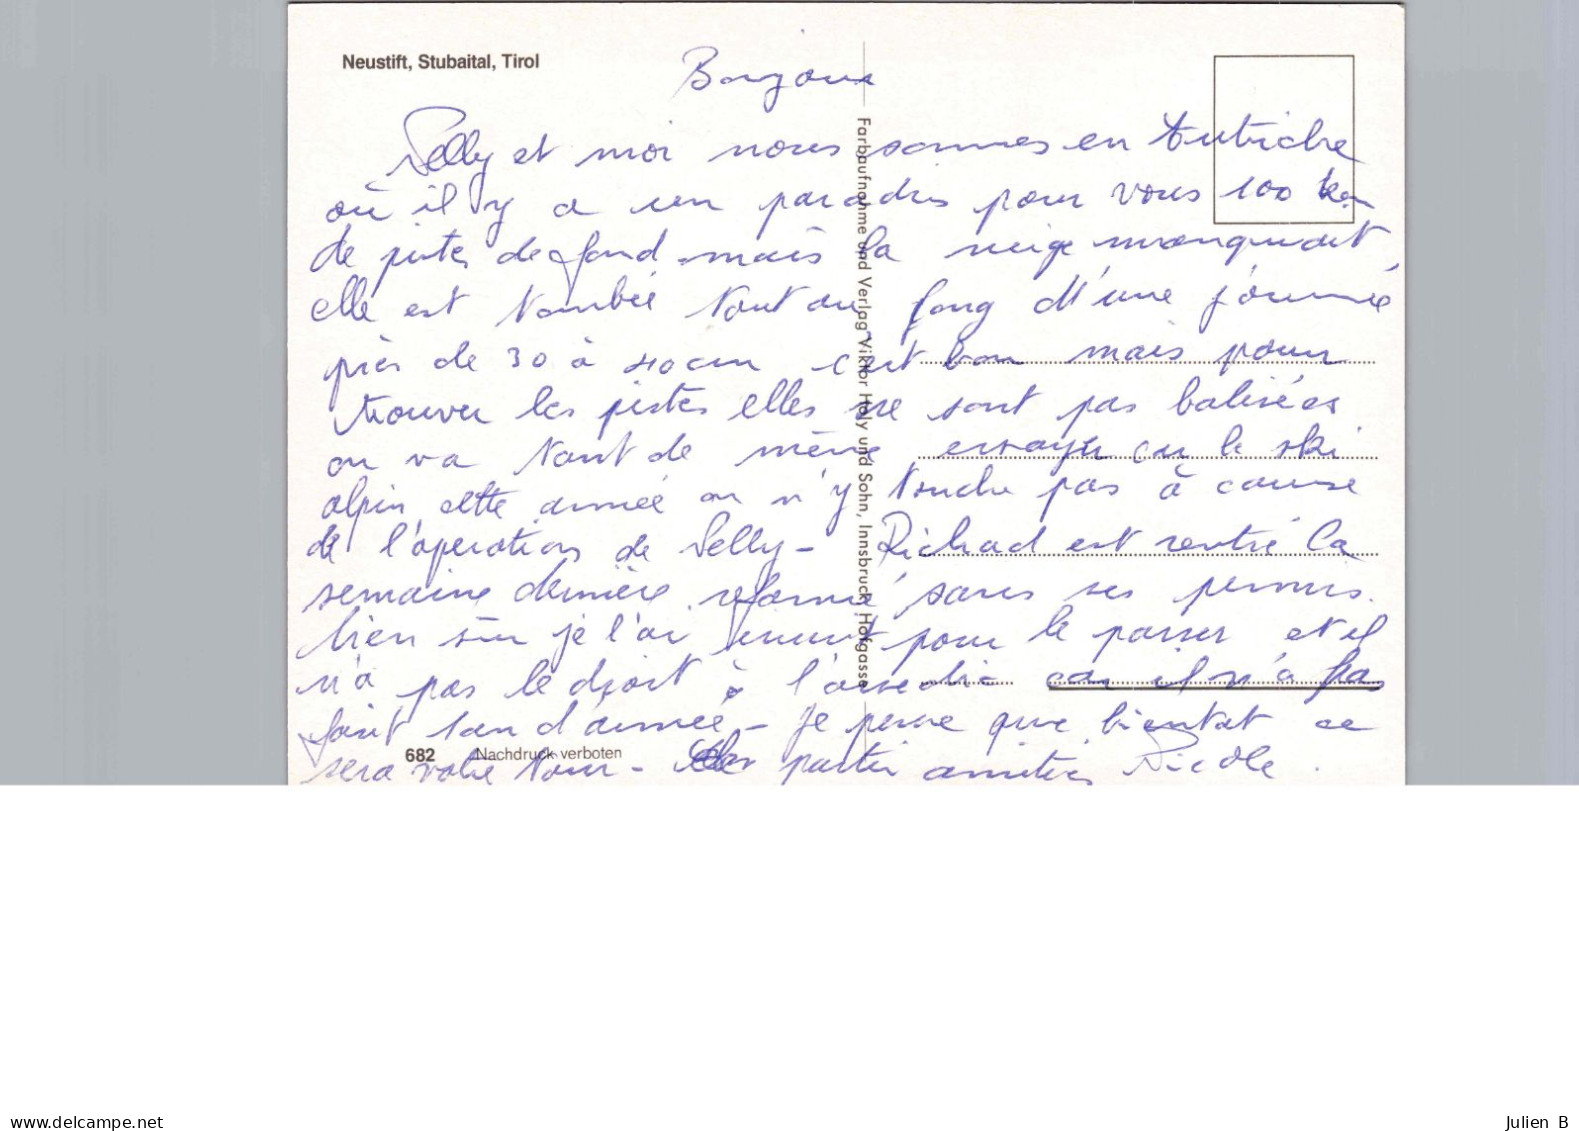 Neustift, Stubaital, Tirol
Bonjour
Nelly et moi nous sommes en Autriche
où il y a un paradis pour vous 100 km
de pistes de fond mais la neige manquait,
elle est tombée tout au long d'une journée
près de 30 à 40 cm c'est bon mais pour
trouver les pistes elles ne sont pas balisées
on va tout de même essayer car le ski
alpin cette année on n'y touche pas à cause
de l'opération de Nelly - Richard est rentré la
semaine dernière réformé sans ses permis.
bien sûr je l'ai inscrit pour le passer et il
n'a pas le droit à l'assedic car il n'a pas
fait 1 an d'armée - Je pense que bientôt ce
sera votre tour - de partir amitiés Nicole.
682 Nachdruck verboten
Farbaufnahme und Verlag Viktor Holy und Sohn, Innsbruck, Hofgasse
www.delcampe.net
Julien B